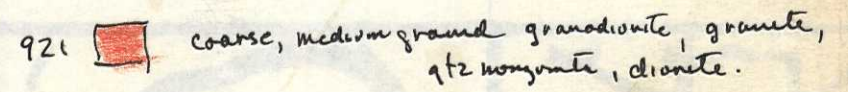 921 coarse, medium ground granodiorite, granite,
qtz monzonite, diorite.